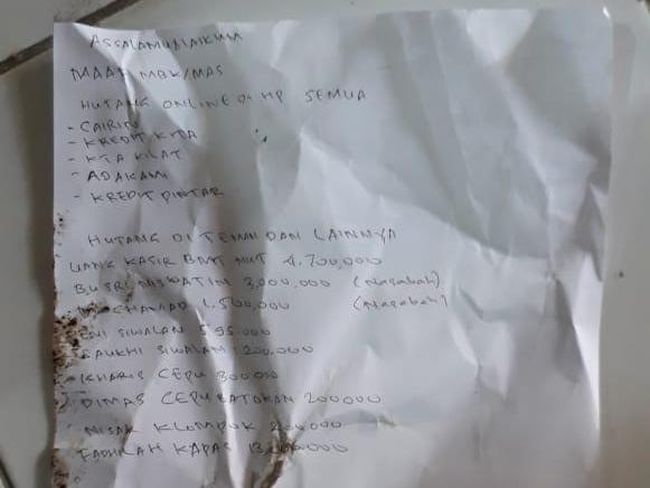 ASSALAMUALAIKUM
MAAF MBK/MAS
HUTANG ONLINE DI HP SEMUA
- CAIRIN
- KREDIT KITA
- KTA KILAT
- ADAKAMI
- KREDIT PINTAR
HUTANG DI TEMAN DAN LAINNYA
UANG KASIR BMT NUT 4.700,000
BU SRI 3,000,000 (Nasabah)
1.500,000 (Nasabah)
SIWALAN 595.000
FAUKHI SIWALAN 1200,000
KHARIS CEPU 800.000
DIMAS CEPU BATOKAN 200000
NISAK KLOMPOK 200000
FADHILAH KAPAS